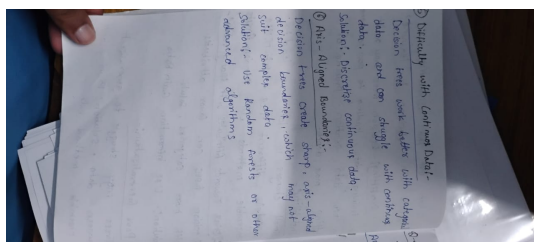 Difficulty with Continues Data:-
Decision trees work better with categori
data and can struggle with continous
data.
Solution:- Discretize continuous data.
⑥ Axis-Aligned Boundaries:-
Decision trees create sharp, axis-aligned
decision boundaries, which may not
suit complex data.
Solution:- Use Random forests or other
advanced algorithms